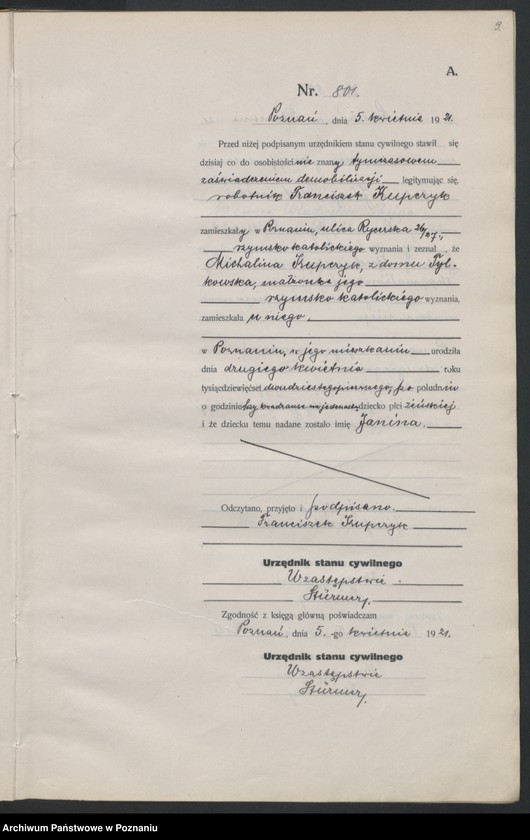 2.
A.
Nr. 801.
Poznań, dnia 5. kwietnia 1921.
Przed niżej podpisanym urzędnikiem stanu cywilnego stawił się
dzisiaj co do osobistości nie znany, tymczasowem
zaświadczeniem demobilizacji legitymując się,
robotnik Franciszek Kupczyk
zamieszkały w Poznaniu, ulica Rycerska 26/27.,
rzymsko katolickiego wyznania i zeznał, że
Michalina Kupczyk, z domu Tyl-
kowska, małżonka jego
rzymsko katolickiego wyznania,
zamieszkała u niego.
w Poznaniu, w jego mieszkaniu urodziła
dnia drugiego kwietnia roku
tysiącdziewięćset dwudziestegopierwszego, po południu
o godzinie trzy kwadranse na dziecko płci żeńskiej
i że dziecku temu nadane zostało imię Janina.
Odczytano, przyjęto i podpisano.
Franciszek Kupczyk
Urzędnik stanu cywilnego
W zastępstwie
Stürmer
Zgodność z księgą główną poświadczam
Poznań, dnia 5.-go kwietnia 1921.
Urzędnik stanu cywilnego
W zastępstwie
Stürmer
Archiwum Państwowe w Poznaniu